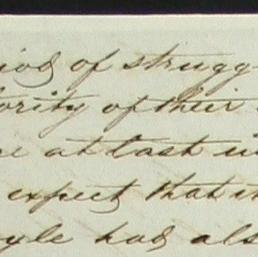 iod of strugg
ority of their
ce at last in
expect that it
oyle had als